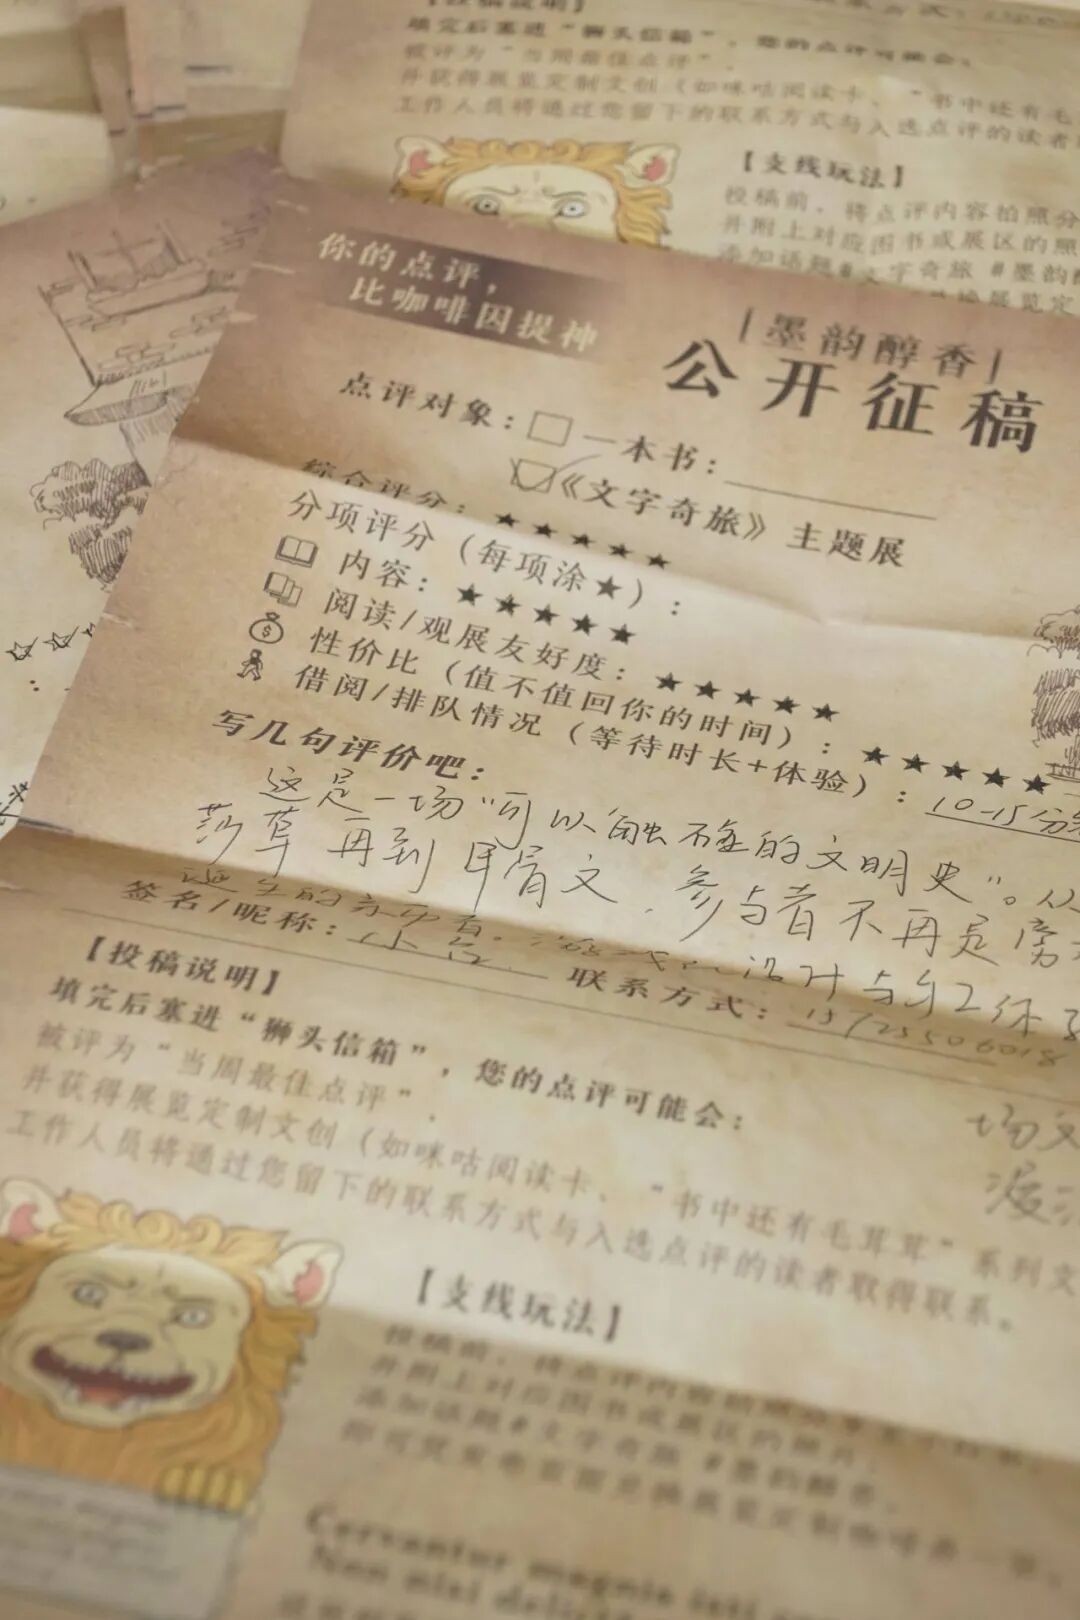 【投稿说明】
填完后塞进“狮头信箱”，您的点评可能会：
被评为“当周最佳点评”，
并获得展览定制文创（如咪咕阅读卡、“书中还有毛
工作人员将通过您留下的联系方式与入选点评的读者
【支线玩法】
投稿前，将点评内容拍照分
并附上对应图书或展区的照
添加话题#文字奇旅 #墨韵醇
你的点评，
比咖啡因提神
|墨韵醇香|
公开征稿
点评对象：□一本书：
《文字奇旅》主题展
综合评分：★★★★★
分项评分（每项涂★）：
内容：★★★★★
阅读/观展友好度：★★★★★
性价比（值不值回你的时间）：★★★★★
借阅/排队情况（等待时长+体验）：10-15分
写几句评价吧：
这是一场“可以触碰的文明史”。从
莎草再到甲骨文，参与者不再是旁
签名/昵称：
联系方式：15725506018
【投稿说明】
填完后塞进“狮头信箱”，您的点评可能会：
被评为“当周最佳点评”，
并获得展览定制文创（如咪咕阅读卡、“书中还有毛茸茸”系列文
工作人员将通过您留下的联系方式与入选点评的读者取得联系。
【支线玩法】
投稿前，将点评内容拍照分
并附上对应图书或展区的照片，
添加话题#文字奇旅 #墨韵醇香，
Cervantur magnis isti
Non nisi delici